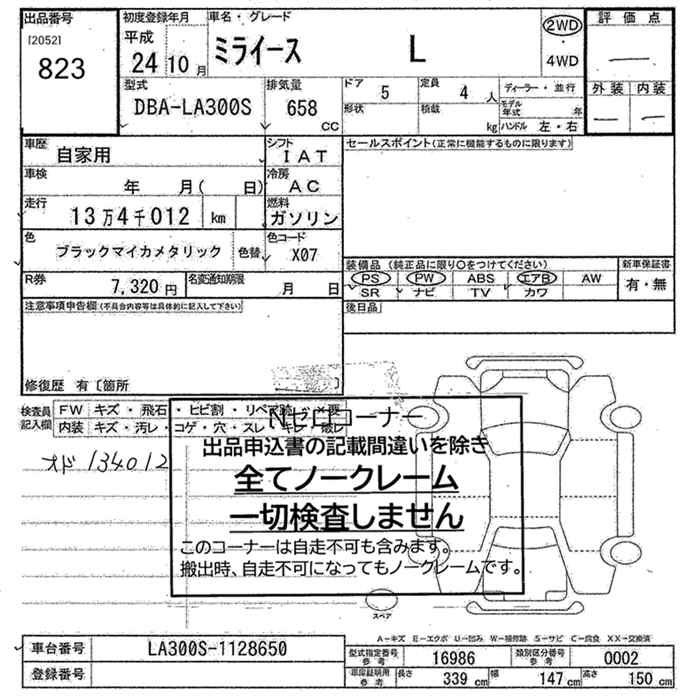 出品番号
[2052]
823
初度登録年月
平成
24 10 月
車名・グレード
ミライース L
2WD
・
4WD
評価点
—
外装 内装
— —
型式
DBA-LA300S
排気量
658
CC
ドア 5
定員 4 人
形状
積載 kg
ディーラー・並行
モデル年式 年
ハンドル 左・右
車歴
自家用
シフト
IAT
セールスポイント(正常に機能するものに限ります)
車検
年 月( 日)
冷房
AC
走行
13万4千012 km
燃料
ガソリン
色
ブラックマイカメタリック
色替
色コード
X07
装備品 (純正品に限り○をつけてください)
新車保証書
PS PW ABS エアB AW
有・無
SR ナビ TV カワ
R券
7,320円
名変通知期限
月 日
後日品
注意事項申告欄(不具合内容等は具体的に記入して下さい)
修復歴 有〔箇所 〕
検査員
記入欄
FW キズ・飛石・ヒビ割・リペア跡・×要
内装 キズ・汚レ・コゲ・穴・スレ
オド 134012
Nゼロコーナー
出品申込書の記載間違いを除き
全てノークレーム
一切検査しません
このコーナーは自走不可も含みます。
搬出時、自走不可になってもノークレームです。
スペア
A−キズ E−エクボ U−凹み W−補修跡 S−サビ C−腐食 XX−交換済
車台番号
LA300S-1128650
登録番号
型式指定番号
参考
16986
類別区分番号
参考
0002
車庫証明用
参考
長さ 339 cm
幅 147 cm
高さ 150 cm